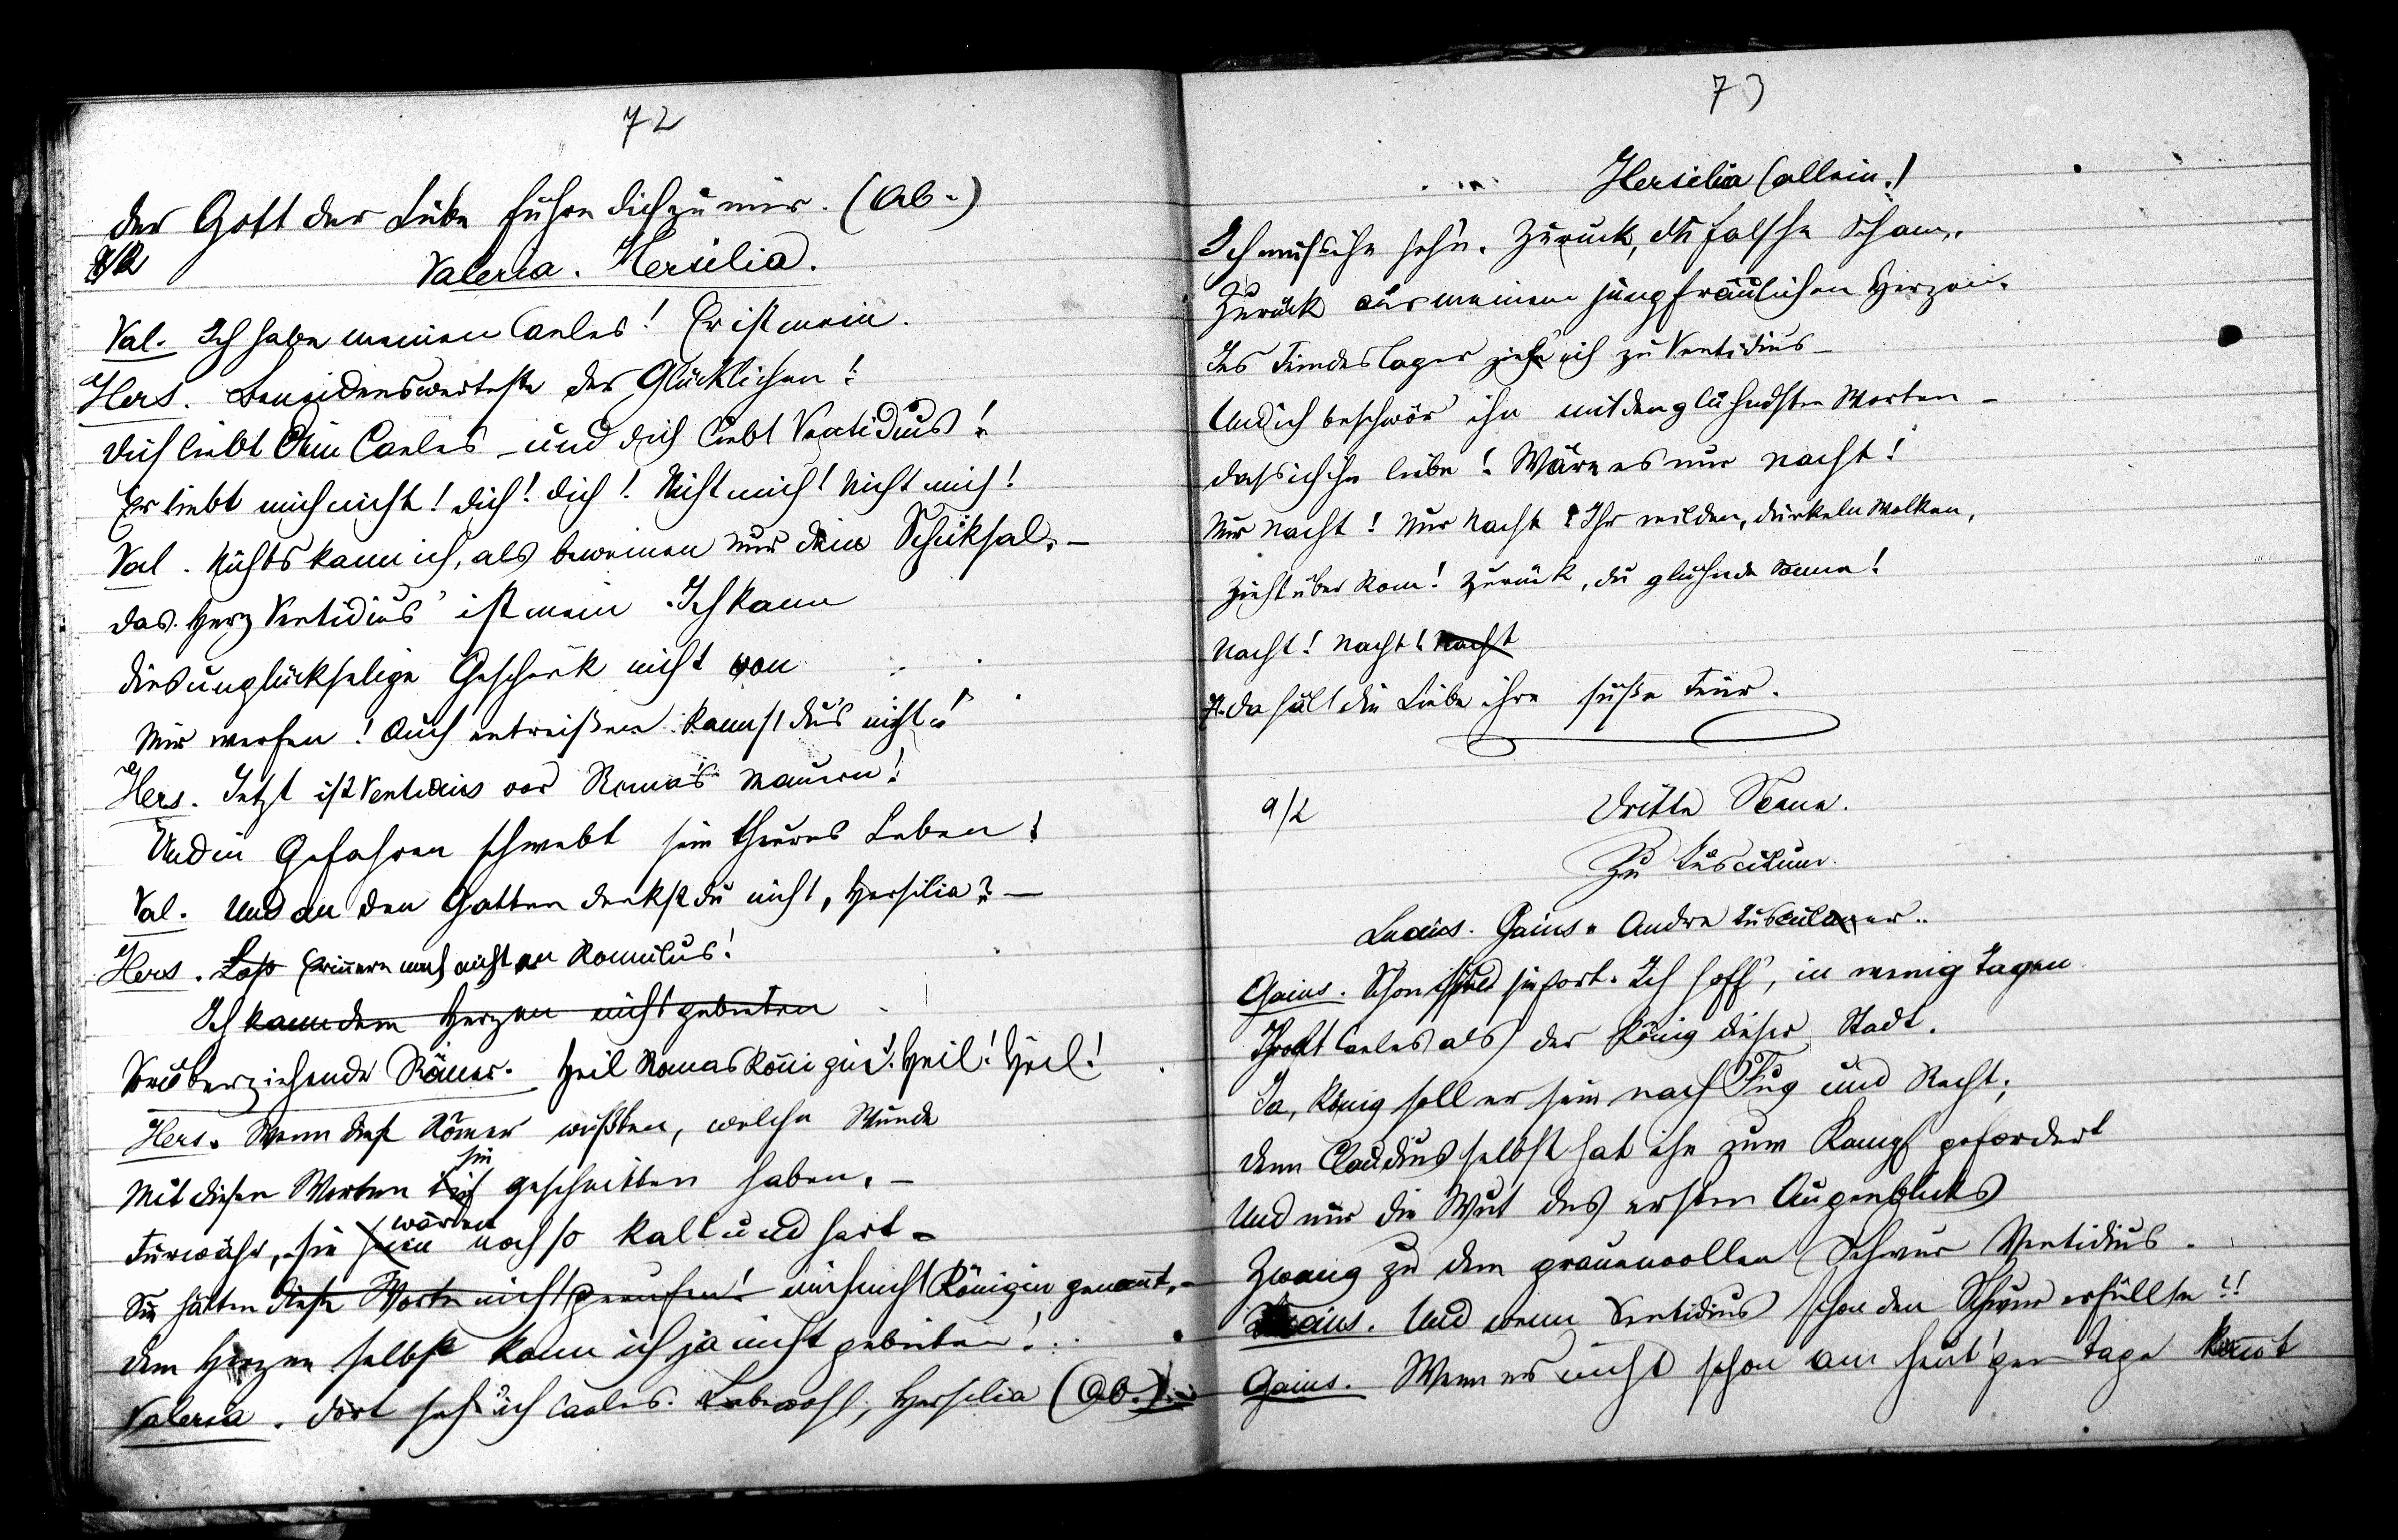 72
der Gott der Liebe führe dich zu mir. (Ab.)
Valeria. Hersilia.
Val. Ich habe meinen Caeles! Er ist mein.
Hers. Beneidenswerteste der Glücklichen!
Dich liebt Dein Caeles – und dich liebt Ventidius!
Er liebt mich nicht! Dich! Dich! Nicht mich! Nicht mich!
Val. Nichts kann ich, als beweinen nur dein Schiksal. –
Das Herz Ventidius' ist mein. Ich kann
dies unglückselige Geschenk nicht von
Mir werfen! Auch entreißen kannst du's nicht!
Hers. Jetzt ist Ventidius vor Roma's Mauern!
Und in Gefahren schwebt sein theures Leben!
Val. Und an den Gatten denkst du nicht, Hersilia? –
Hers. Laß Erinnere mich nicht an Romulus!
Ich kann dem Herzen nicht gebieten
Vorüberziehende Römer. Heil Romas Königin! Heil! Heil!
Hers. Wenn diese Römer wüßten, welche Wunde
sie
Mit diesen Worten geschnitten haben. –
wären
Fürwahr, sie seien noch so kalt und hart –
Sie hätten diese Worte nicht gerufen! mich nicht Königin genannt. –
Dem Herzen selbst kann ich ja nicht gebieten!
Valeria. Dort seh' ich Caeles. Lebewohl, Hersilia (Ab.)
73
Hersilia (allein.)
Ich muß ihn sehn. Zurück, du falsche Scham,
Zurück aus meinem jungfräulichen Herzen.
Ins Feindeslager zieh' ich zu Ventidius –
Und ich beschwör' ihn mit den glühndsten Worten –
daß ich ihn liebe! Wäre es nur Nacht!
Nur Nacht! Nur Nacht! Ihr wilden, dunkeln Wolken,
Zieht über Rom! Zurück, du glühnde Sonne!
Nacht! Nacht! Nacht
Da hält die Liebe ihre süße Feier.
9/2
Dritte Scene.
Zu Tusculum.
Lucius. Gaius. Andre Tusculaner..
Gaius. Schon sind sie fort. Ich hoff', in wenig Tagen
Thront Caeles als der König dieser Stadt.
Ja, König soll er sein nach Fug und Recht;
denn Claudius selbst hat ihn zum Kampf gefordert
Und nur die Wut des ersten Augenblicks
Zwang zu dem grauenvollen Schwur Ventidius.
Lucius. Und wenn Ventidius schon den Schwur erfüllte?!
Gaius. Wenn er nicht schon am heut'gen Tage kommt